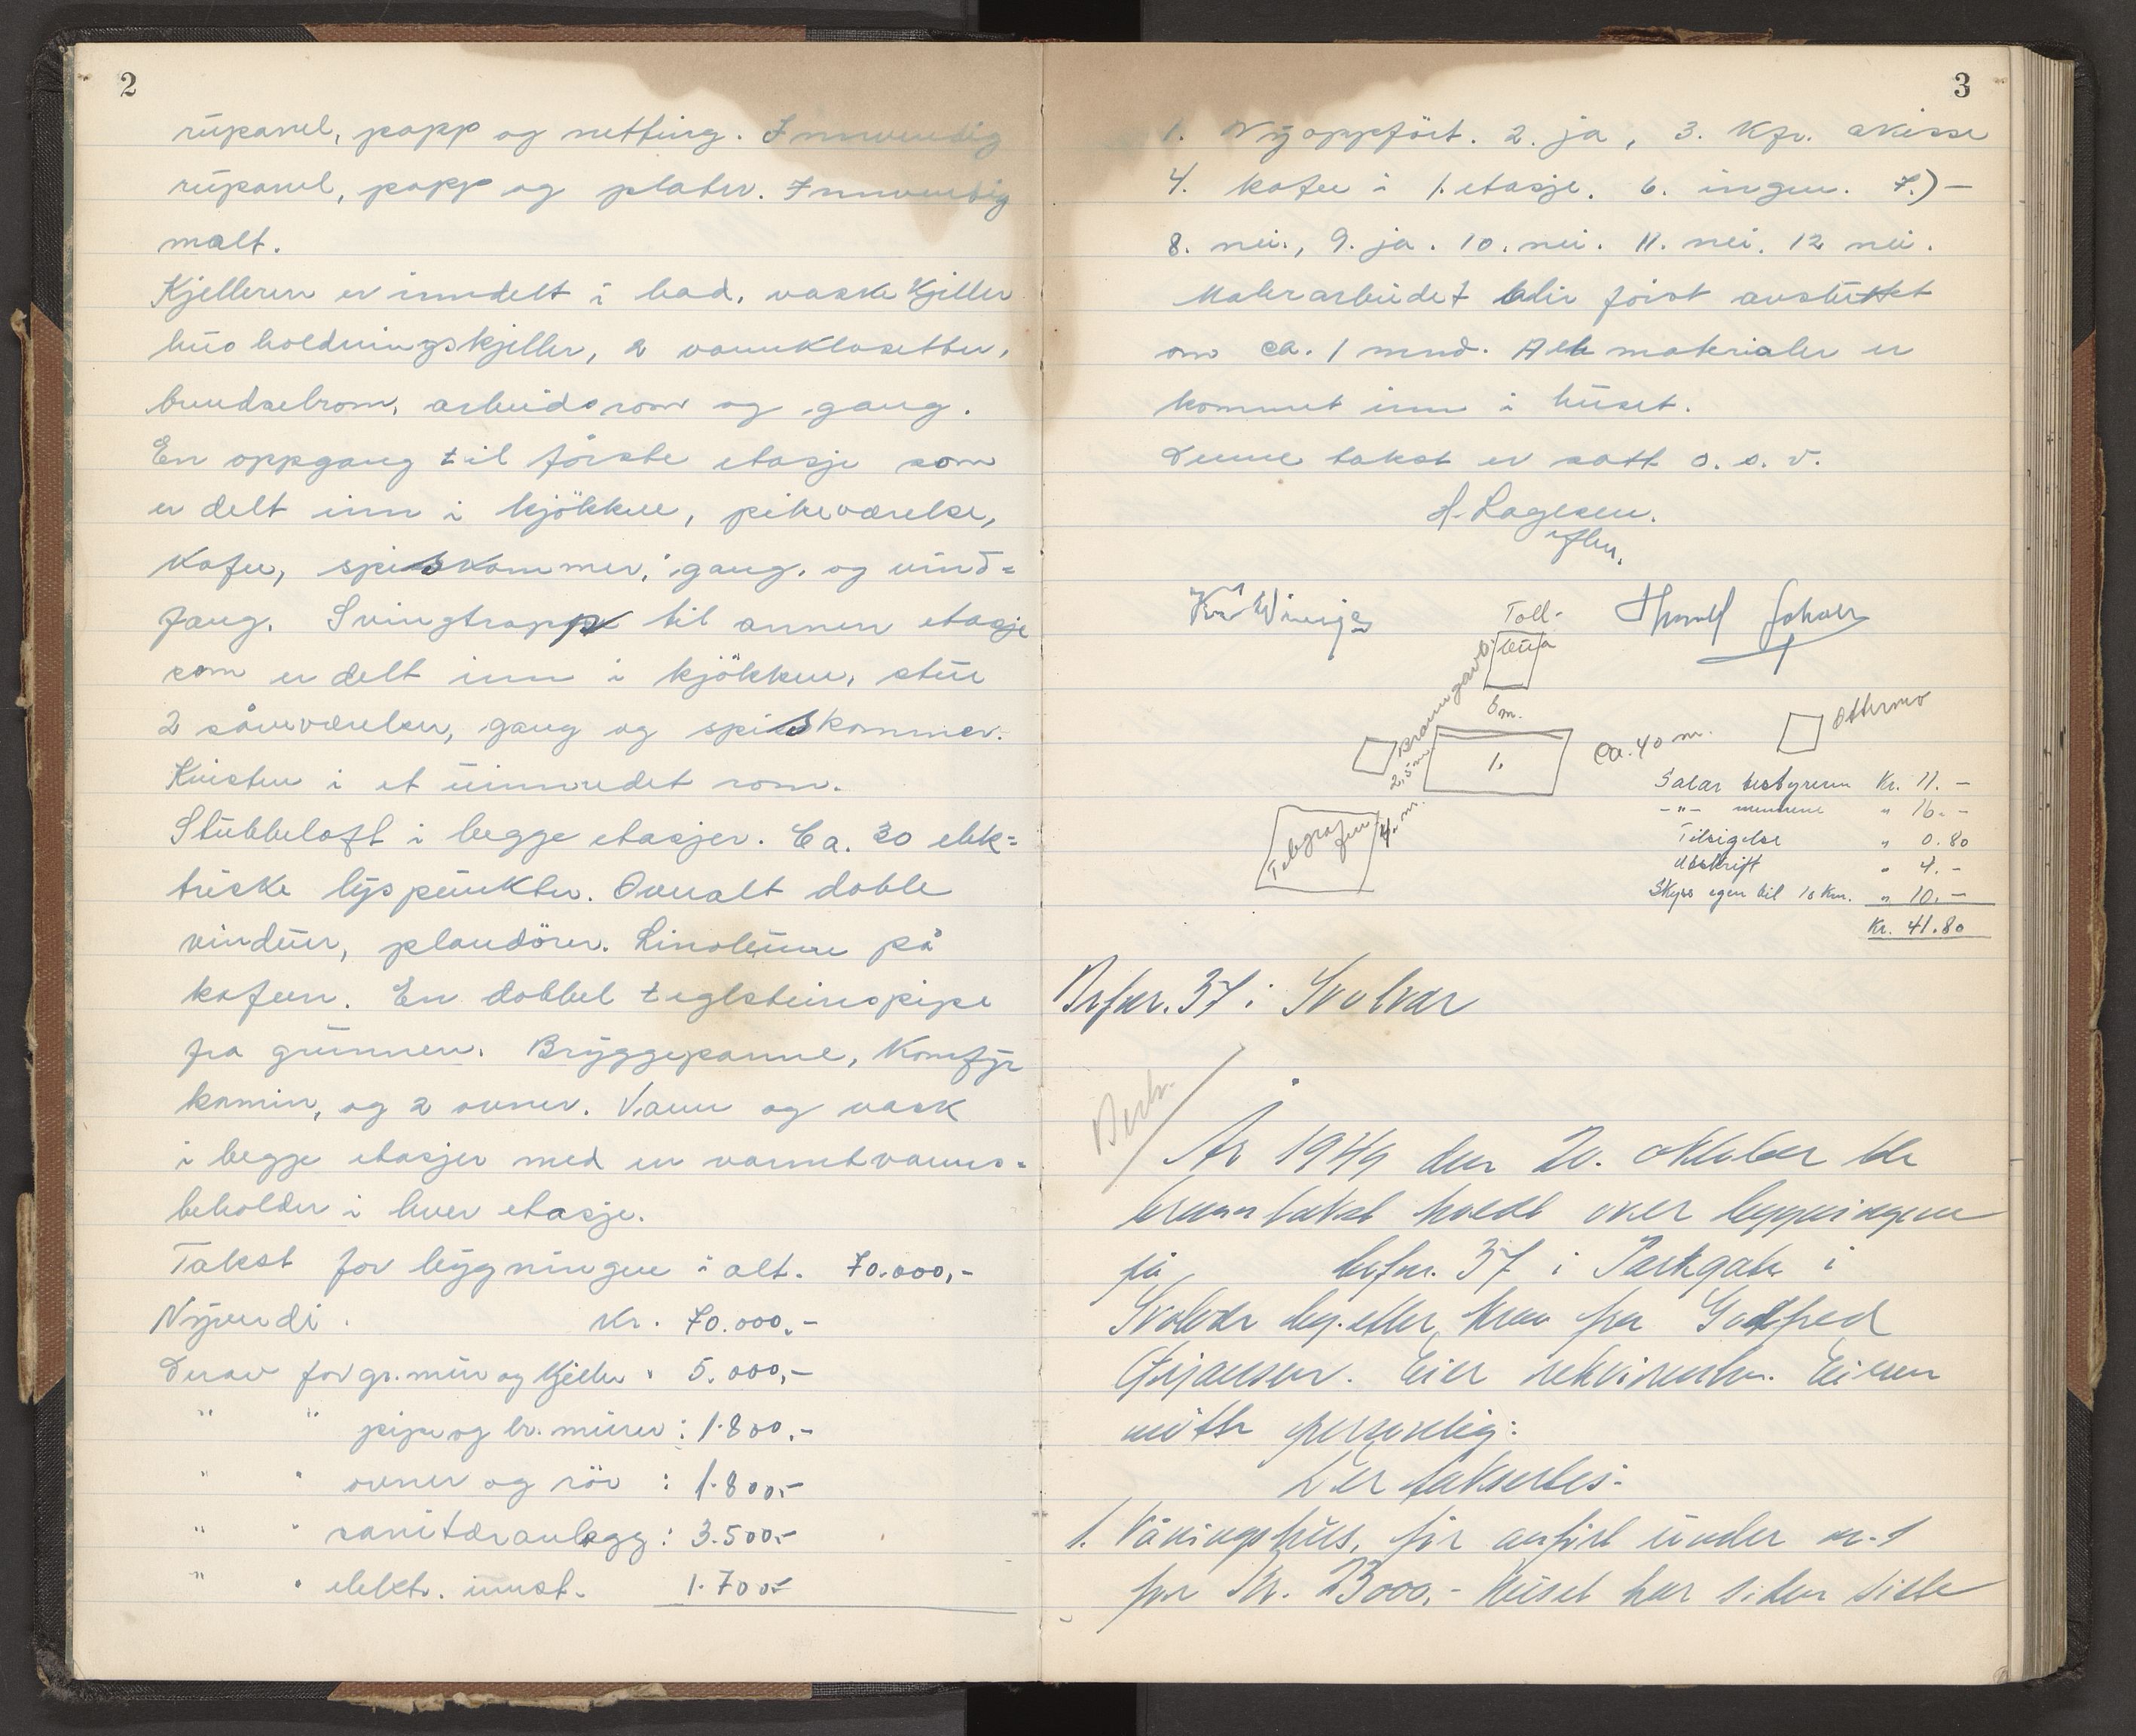 2
rupanel, papp og netting. Innvendig
rupanel, papp og plater. Innvendig
malt.
Kjelleren er inndelt i bad, vaskekjeller
husholdningskjeller, 2 vannklosetter,
brendselrom, arbeidsrom og gang.
En oppgang til første etasje som
er delt inn i kjökken, pikeværelse,
kafee, spiskammer, gang, og vind=
fang. Svingtrapp til annen etasje
som er delt inn i kjökken, stue
2 soveværelser, gang og spiskammer.
Kvisten i et uinnredet rom.
Stubbeloft i begge etasjer. Ca. 30 elek=
triske lyspunkter. Overalt doble
vinduer, plandörer. Linoleum på
kafeen. En dobbel teglsteinspipe
fra grunnen. Bryggepanne, Komfyr
kamin, og 2 ovner. Vann og vask
i begge etasjer med en varmtvanns=
beholder i hver etasje.
Takst for bygningen i alt. 70.000,-
Nyverdi. kr. 70.000.-
Derav for gr. mur og kjeller " 5.000,-
" " pipe og br. murer : 1.800.-
" " ovner og rör : 1.800.-
" " sanitæranlegg : 3.500.-
" " elektr. innst. 1.700.-
3
1. Nyoppfört. 2. ja, 3. Kfr. skisse
4. kafee i 1. etasje. 6. ingen. 7.) -
8. nei., 9. ja. 10. nei. 11. nei. 12 nei.
Malerarbeidet blir först avsluttet
om ca. 1 mnd. Alle materialer er
kommet inn i huset.
Denne takst er satt o. s. v.
H. Dagesen.
Toll-
bua
Branngavl
6 m.
2,5 m
1.
ca. 40 m.
Ottermo
Telegrafen
4. m.
Salær bestyreren Kr. 11. -
-"- mennene " 16. -
Tilsigelse " 0.80
Utskrift " 4. -
Skyss egen bil 10 Km. " 10. -
Kr. 41.80
Br.nr. 37 i Svolvær
År 1949 den 20. oktober ble
branntakst holdt over bygningene
på br.nr. 37 i Parkgata i
Svolvær by. etter krav fra Godfred
Eier rekvirenten. Eieren
møtte personlig:
Der taksertes:
1. Våningshus, før anført under nr. 1
for Kr. 23000,- Huset har siden siste